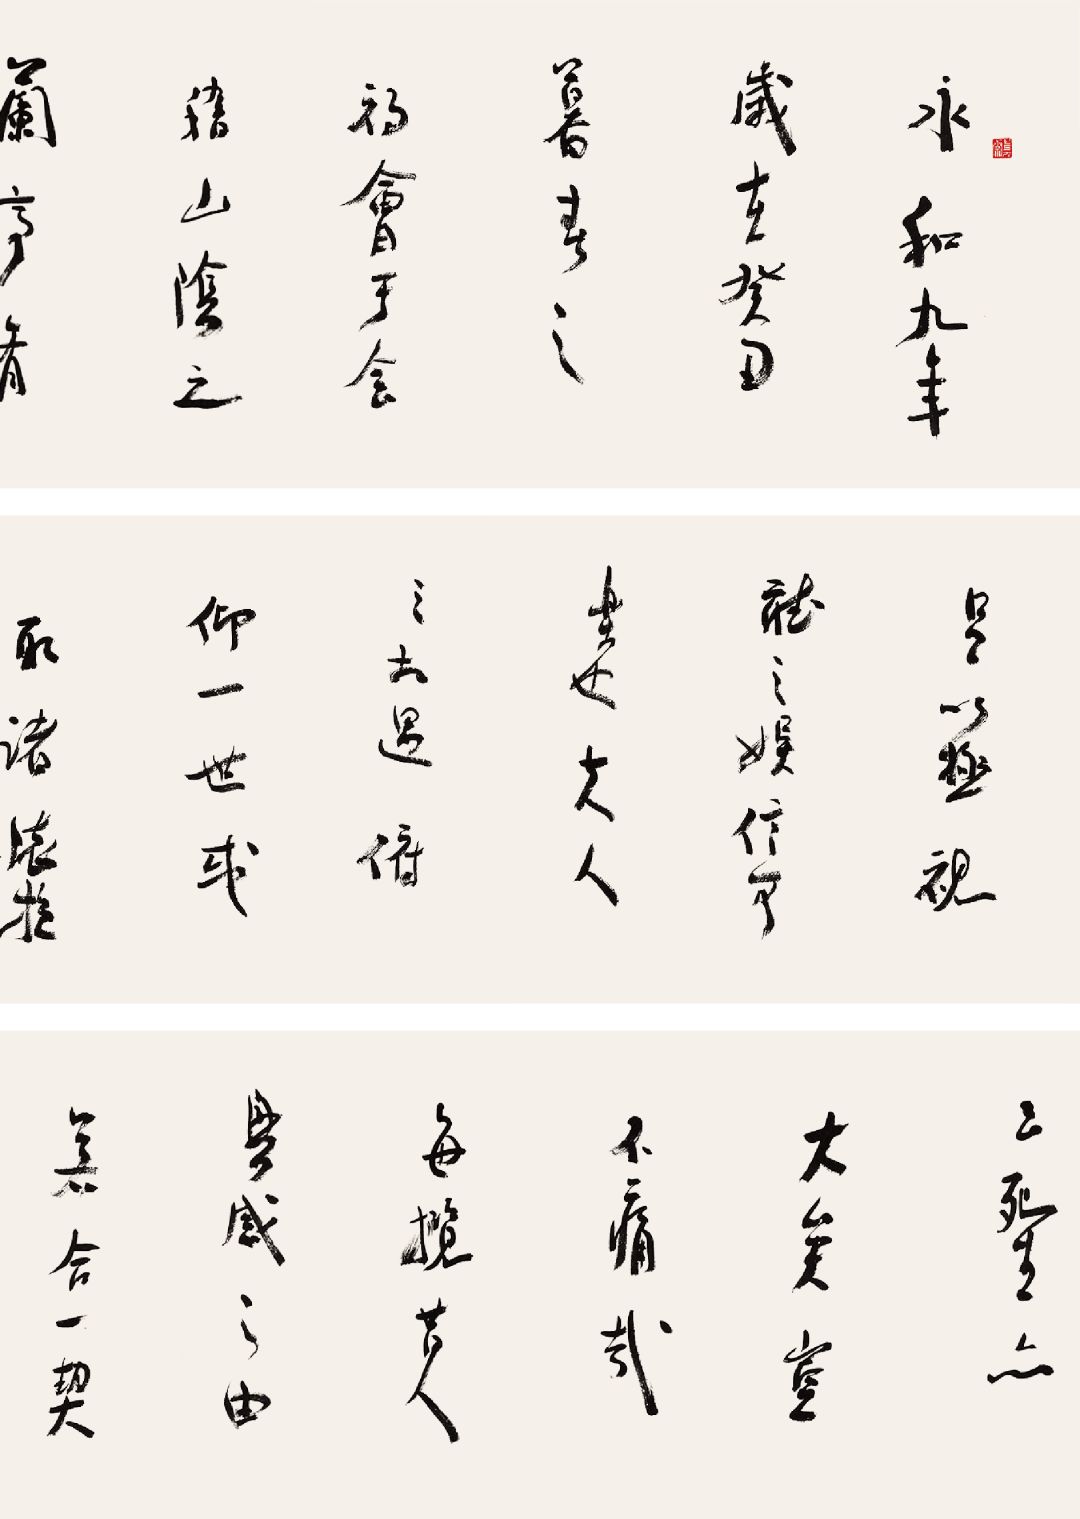 永和九年
歲在癸丑
暮春之
初會于会
稽山陰之
蘭亭脩
足以極視
聽之娛信可
樂也夫人
之相俯
仰一世或
取諸懷抱
云死生亦
大矣豈
不痛哉
每攬昔人
興感之由
若合一契